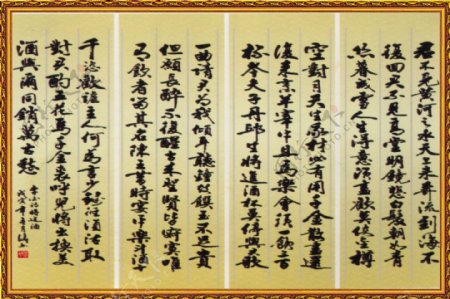 君不見黄河之水天上来奔流到海不
復回又不見高堂明鏡悲白髮朝如青
絲暮成雪人生得意須盡歡莫使金樽
空對月天生我材必有用千金散盡還
復来烹羊宰牛且為樂會須一飲三百
杯岑夫子丹邱生將進酒杯莫停與君歌
一曲請君為我傾耳聽鐘鼓饌玉不足貴
但願長醉不復醒古来聖賢皆寂寞唯
有飲者留其名陳王昔時宴平樂斗酒十
千恣歡謔主人何為言少錢徑須沽取
對君酌五花馬千金裘呼兒將出換美
酒與爾同銷萬古愁
李白詩將進酒
戊寅年